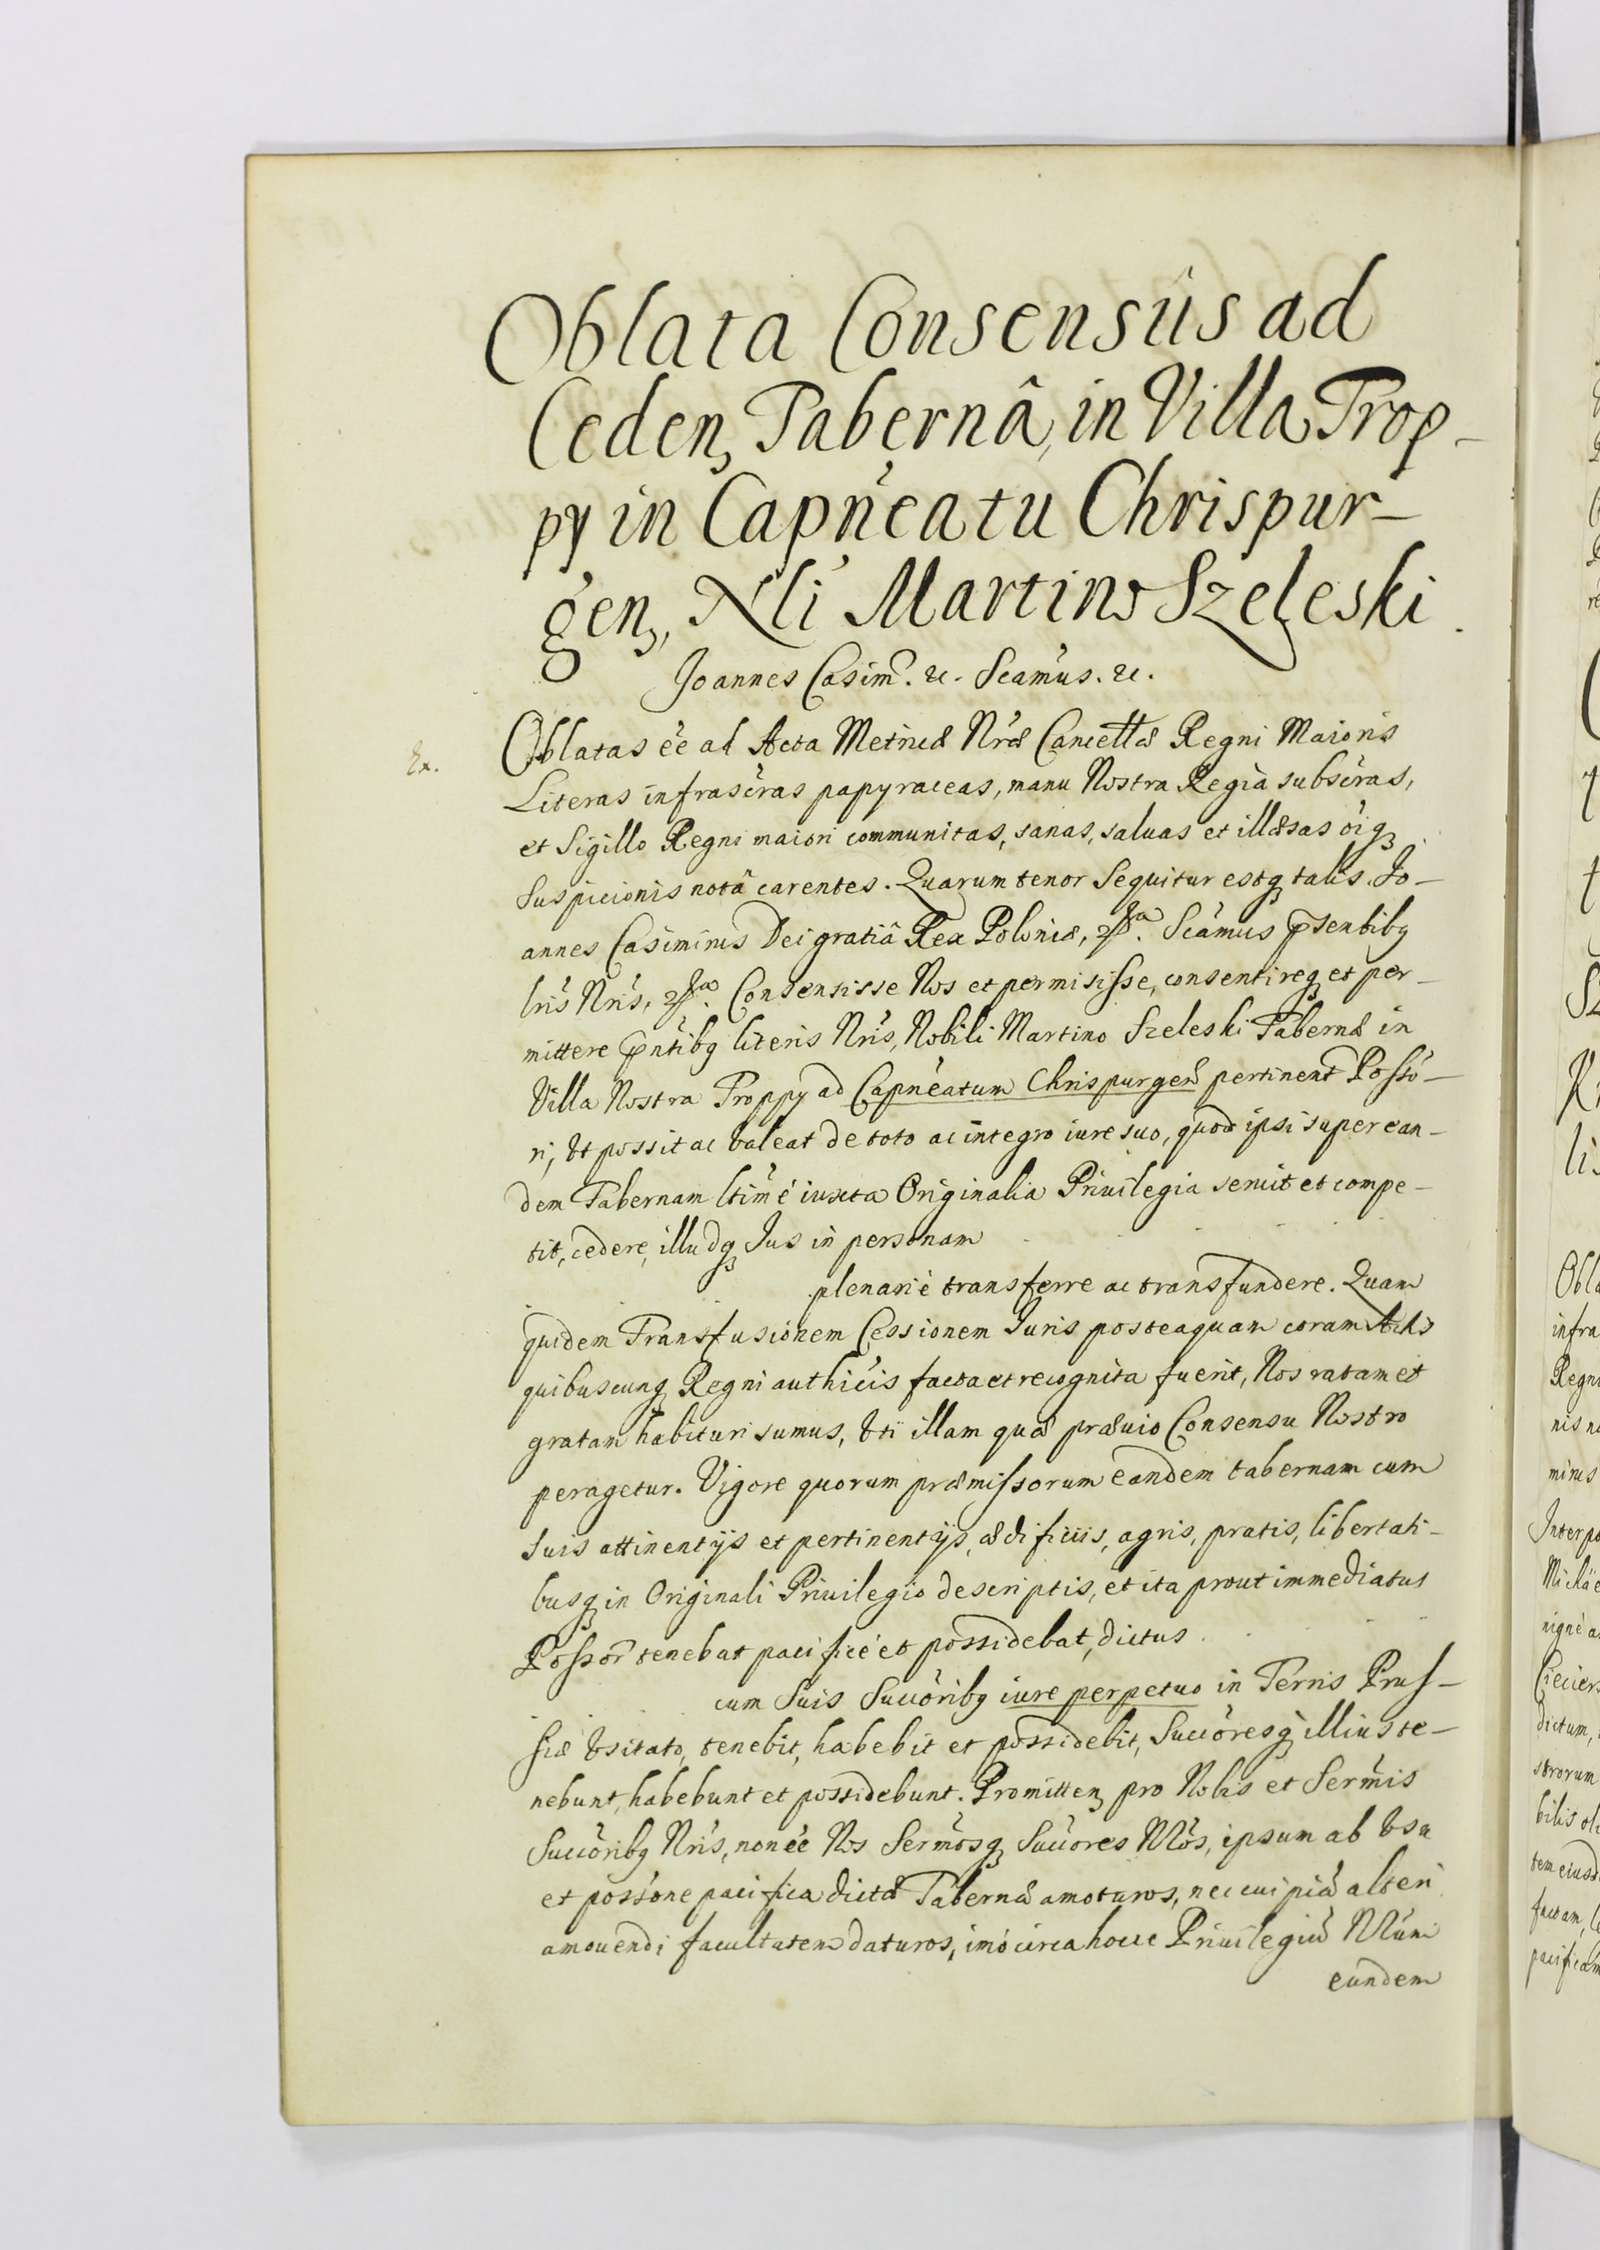 Oblata Consensûs ad
Ceden, Tabernâ, in Villa Trop-
py in Capn̄eatu Chrispur-
gen, Nli Martino Szeleski.
Joannes Casim̃. &c. Scãmus. &c.
Ex.
Oblatas ẽe ad Acta Metricæ Nr̃æ Cancellæ Regni Maioris
Literas infrascr̃as papyraceas, manu Nostra Regia subscr̃as,
et Sigillo Regni maiori communitas, sanas, saluas et illæsas õiq
suspicionis notâ carentes. Quarum tenor sequitur estq talis. Jo-
annes Casimirus Dei gratiâ Rex Poloniæ, &c. Scãmus p̃sentibq
lr̃is Nr̃is, &c. Consensisse Nos et permisisse, consentireq et per-
mittere p̃ntibq literis Nr̃is, Nobili Martino Szeleski Tabernæ in
Villa Nostra Proppy ad Capn̄eatum Chrispurgen̄ pertinent̄ Possõ-
ri, Vt possit ac valeat de toto ac integro iure suo, quod ipsi super ean-
dem Tabernam ltimẽ iuxta Originalia Priuilegia seruit et compe-
tit, cedere, illudq Jus in personam
plenariè transferre ac transfundere. Quam
quidem Transfusionem Cessionem Juris posteaquam coram Actis
quibuscunq Regni authicis facta et recognita fuerit, Nos ratam et
gratam habituri sumus, Vti illam quæ præuio Consensu Nostro
peragetur. Vigore quorum præmissorum eandem tabernam cum
suis attinentijs et pertinentijs, ædificiis, agris, pratis, libertati-
busq in Originali Priuilegio descriptis, et ita prout immediatus
Possor̃ tenebat pacificè et possidebat, dictus
cum suis Succõribq iure perpetuo in Terris Prus-
siæ Vsitato, tenebit, habebit et possidebit, Succõresq illius te-
nebunt, habebunt et possidebunt. Promitten, pro Nobis et Serm̃is
Succõribq Nr̃is, non ẽe Nos Serm̃osq Succõres Nr̃os, ipsum ab Vsu
et possõne pacifica dictæ Tabernæ amoturos, nec cuipiã alteri
amouendi facultatem daturos, imò circa hocce Priuilegiũ Nr̃um
eundem